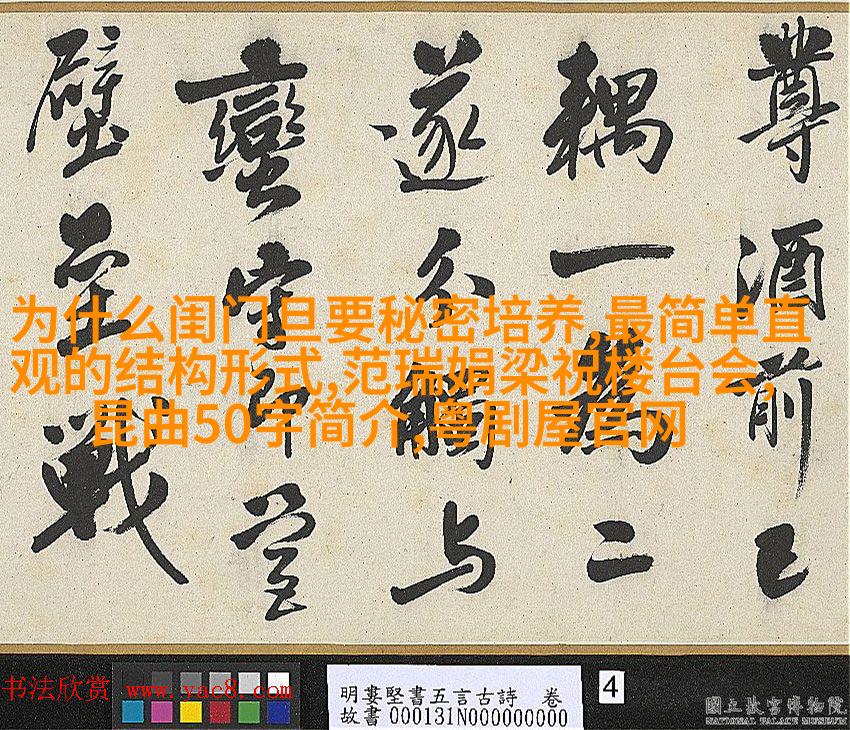 尊酒前已
耦一為二
遂分觸与
蠻守即營
壁垒戰
为什么闺门旦要秘密培养,最简单直
观的结构形式,范瑞娟梁祝楼台会,
昆曲50字简介,粤剧屋官网
书法欣赏 www.yac8.com
明婁堅書五言古詩 卷
故書000131N000000000
4
國立故宮博物院
NATIONAL PALACE MUSEUM